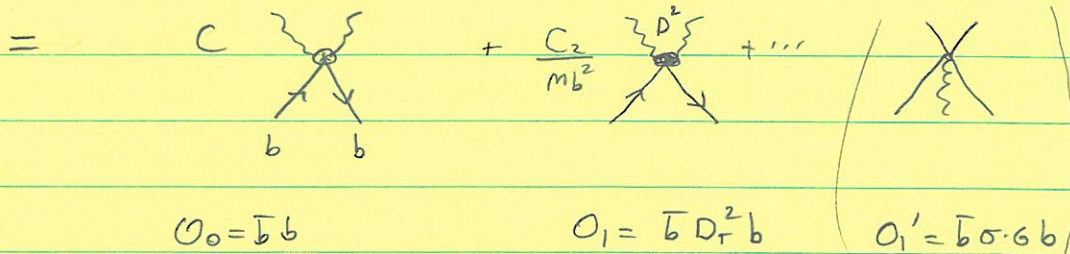 = C + C₂/mb² D² + ...
b b
O₀ = b̄ b O₁ = b̄ D_T² b O₁' = b̄ σ·G b